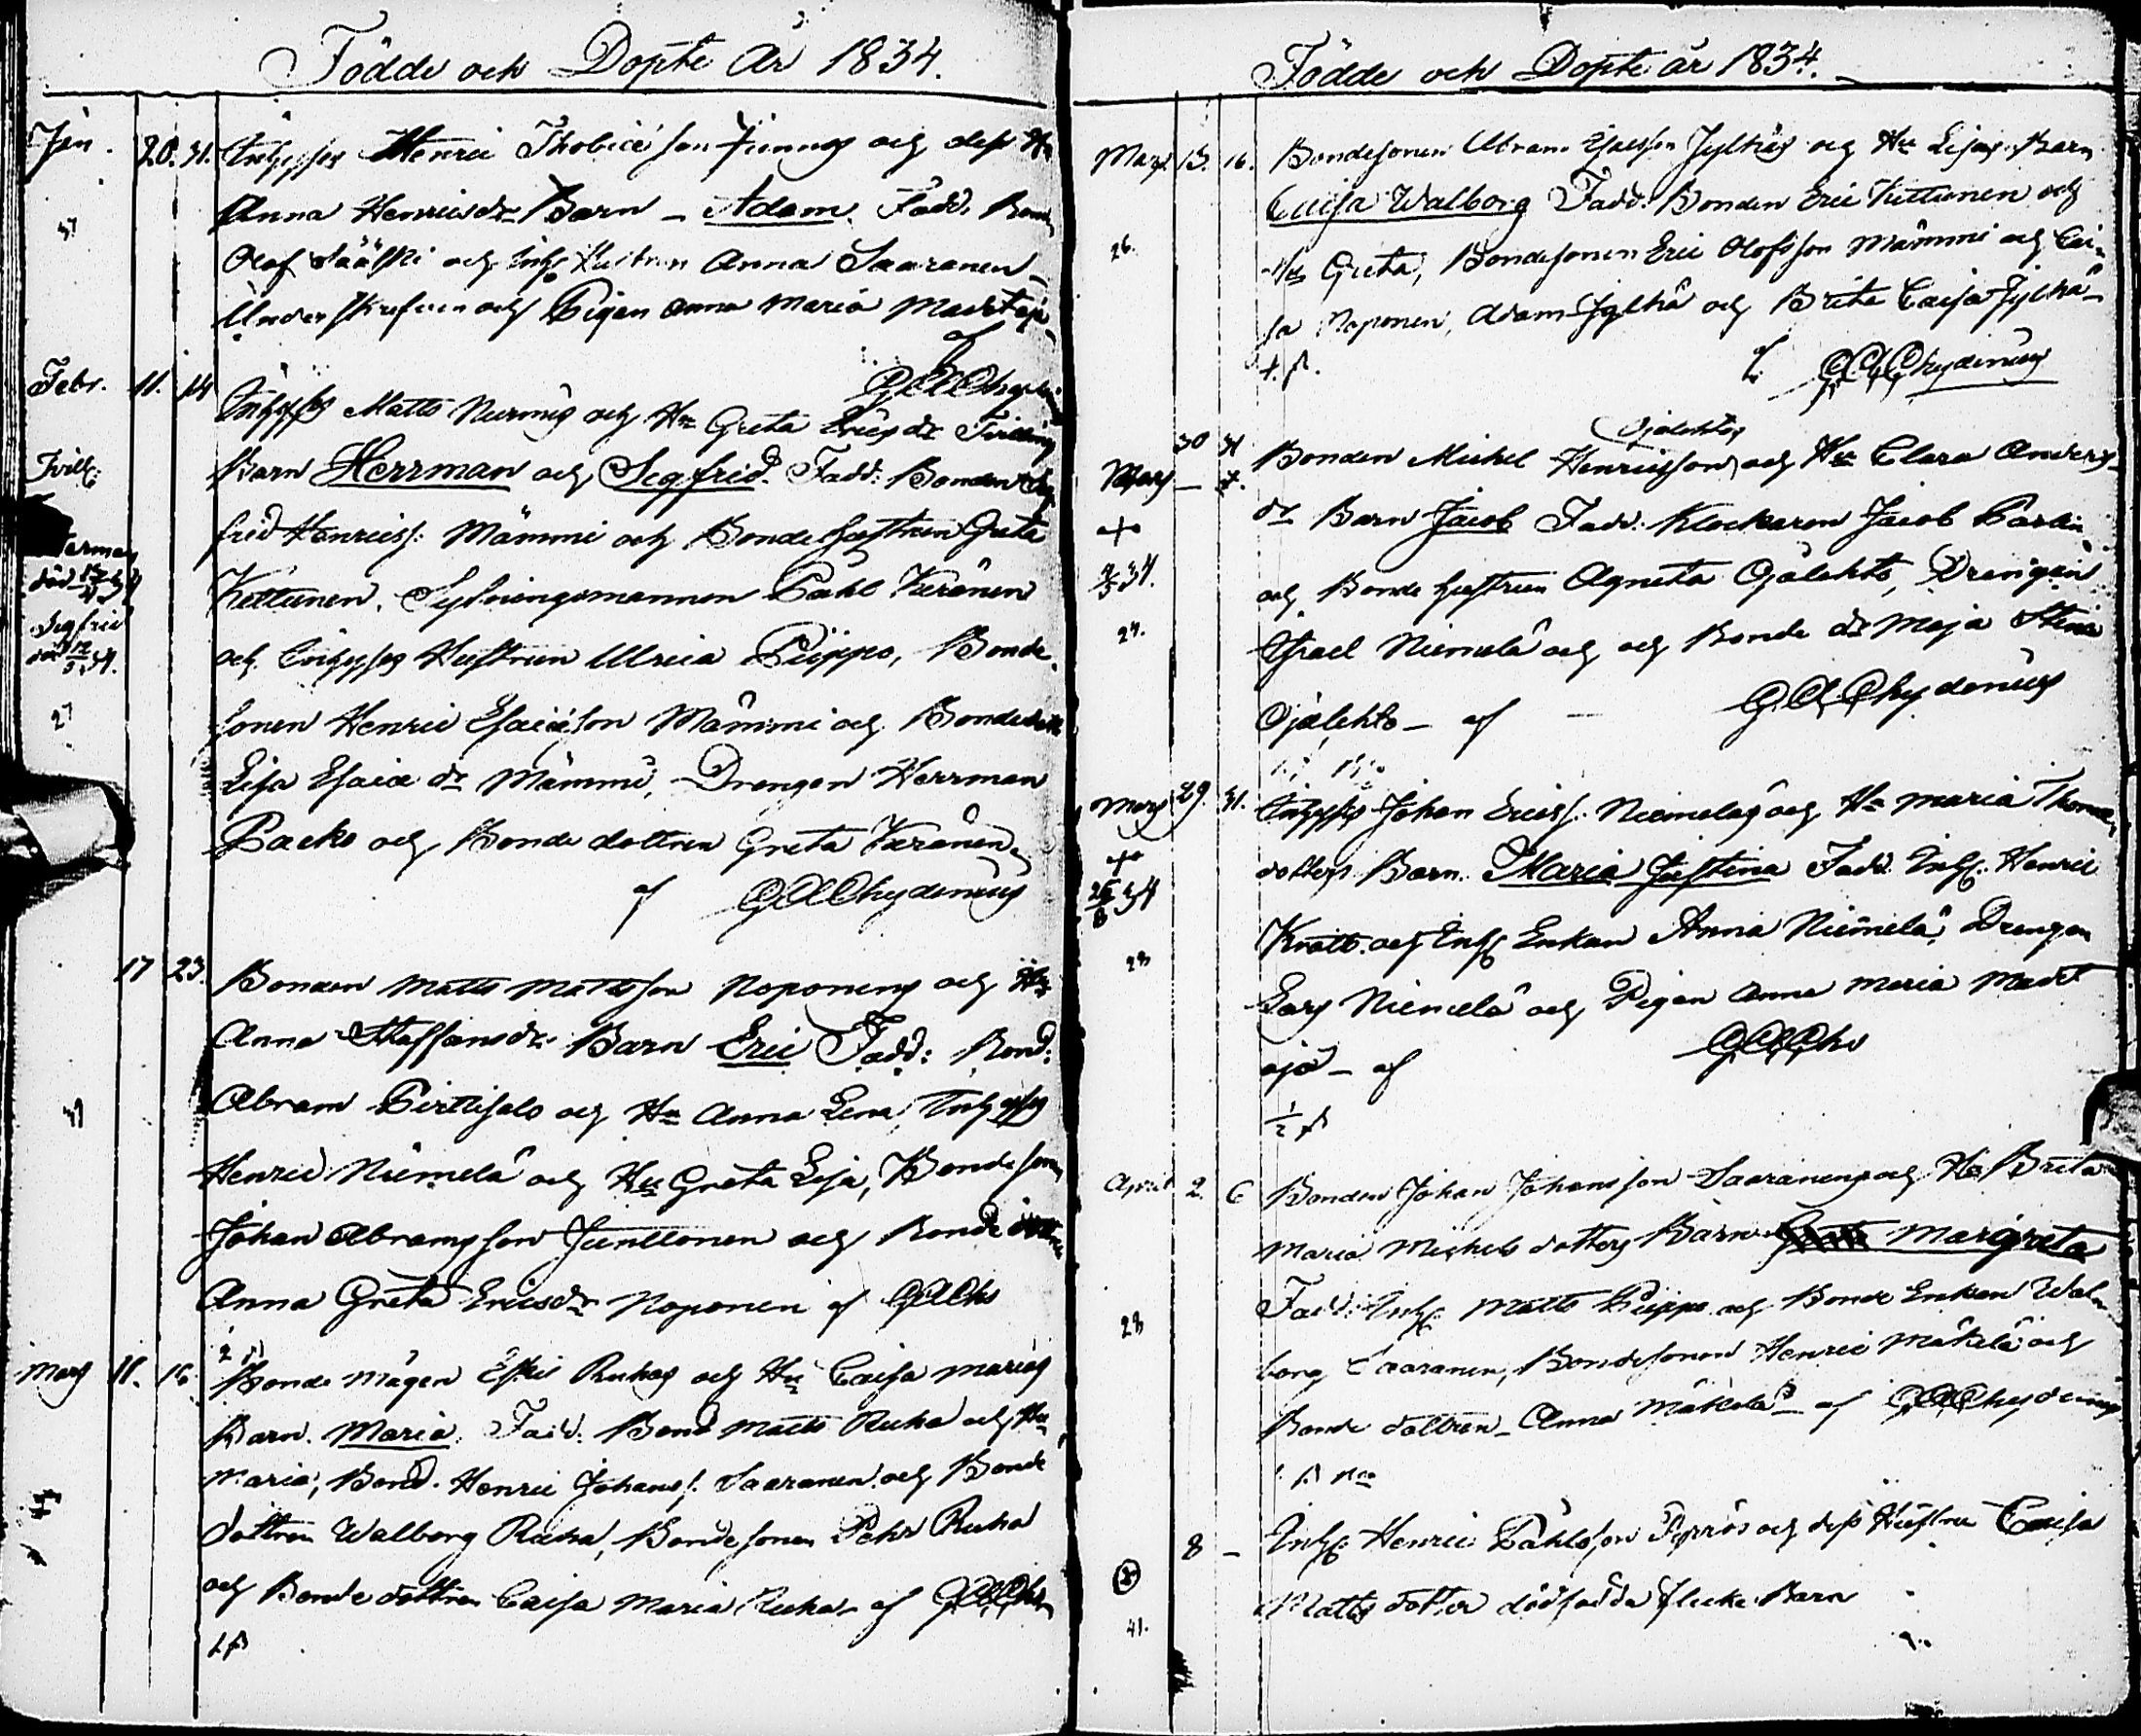 Födde och Döpte År 1834.
Jan. 20. 31. Inhyses Henric Thobiæson Finnes och dess Hu
Anna Henricsdr Barn – Adam. Fadd. Bond
Olof Sääski och Inhs Hustrun Anna Saaranen –
och Pigan Anna Maria Madetoja –
af
GAChydenius
Febr. 11. 14 Inhyses Matts Nurmis och Hu Greta Ericsdr Tvilling
Tvill:
Barn Herrman och Segfred. Fadd: Bonden Seg
Herman
frid Henricss: Mämmi och Bonde Hustrun Greta
död 34
Kettunen, Sexmannen Påhl Keränen
Segfrid
död 34.
och Inhyses Hustrun Ulrica Piippo, Bonde
27
sonen Henric Esaiæson Mämmi och Bondedottr
Lisa Esaiæ dr Mämmi, Drengen Herrman
Packo och Bonde dottren Greta Keränen
af GAChydenius
17 23. Bonden Matts Mattsson Noponens och Hu
Anna Staffansdr Barn Eric Fadd: Bond:
Abram Pirttisalo och Hu Anna Lena, Inhyses
Henric Niemelä och Hu Greta Lisa, Bondeson
Johan Abramsson Junttonen och Bonde dottren
Anna Greta Ericsdr Noponen af GAChs
Mars 11. 16. Bonde Mågen Eskil Ruhas och Hu Caisa Marias
Barn. Maria. Fadd: Bond Matts Ruha och Hu
Maria, Bond. Henric Johanss. Saaranen och Bonde
dottren Walborg Ruha, Bondesonen Pehr Ruha
och Bonde dottren Caisa Maria Ruha – af GAChs
Födde och Döpte år 1834.
Mars 13. 16. Bondesonen Abram Jylhäs och Hu Lisas Barn
Caisa Walborg Fadd: Bonden Eric Kettunen och
26.
Hu Greta, Bondesonen Eric Olofsson Mämmi och Cai-
sa Noponen, Adam Jylhä och Brita Caisa Jylhä –
af GAChydenius
Ojalehtos
30 31
Mars Bonden Michel Henricsson och Hu Clara Anders
dr Barn Jacob Fadd: Klockaren Jacob Parlin
34.
och Bonde hustrun Agneta Ojalehto, Drengen
Israel Niemelä och och Bonde dr Maja Stina
Ojalehto – af – GAChydenius
Mars 29. 31. Inhyses Johan Ericss. Niemeläs och Hu Maria Thomæ
dotters Barn. Maria Justina Fadd. Inhs. Henric
34
Knotts och Inhs Enkan Anna Niemelä, Drengen
Lars Niemelä och Pigan Anna Maria Madet
oja – af GAChs
April 2. 6 Bonden Johan Johansson Saaranens och Hu Brita
Maria Michels dotters Barn Margreta
Fadd: Inhs. Matts Piippo och Bonde Enkan Wal
borg Saaranen, Bondesonen Henric Mäkelä och
Bonde dottren – Anna Mäkelä – af GAChydenius
8 – Inhs Henric Påhlsson och dess Hustru Caisa
Matts dotter dödfödda flicke Barn
41.